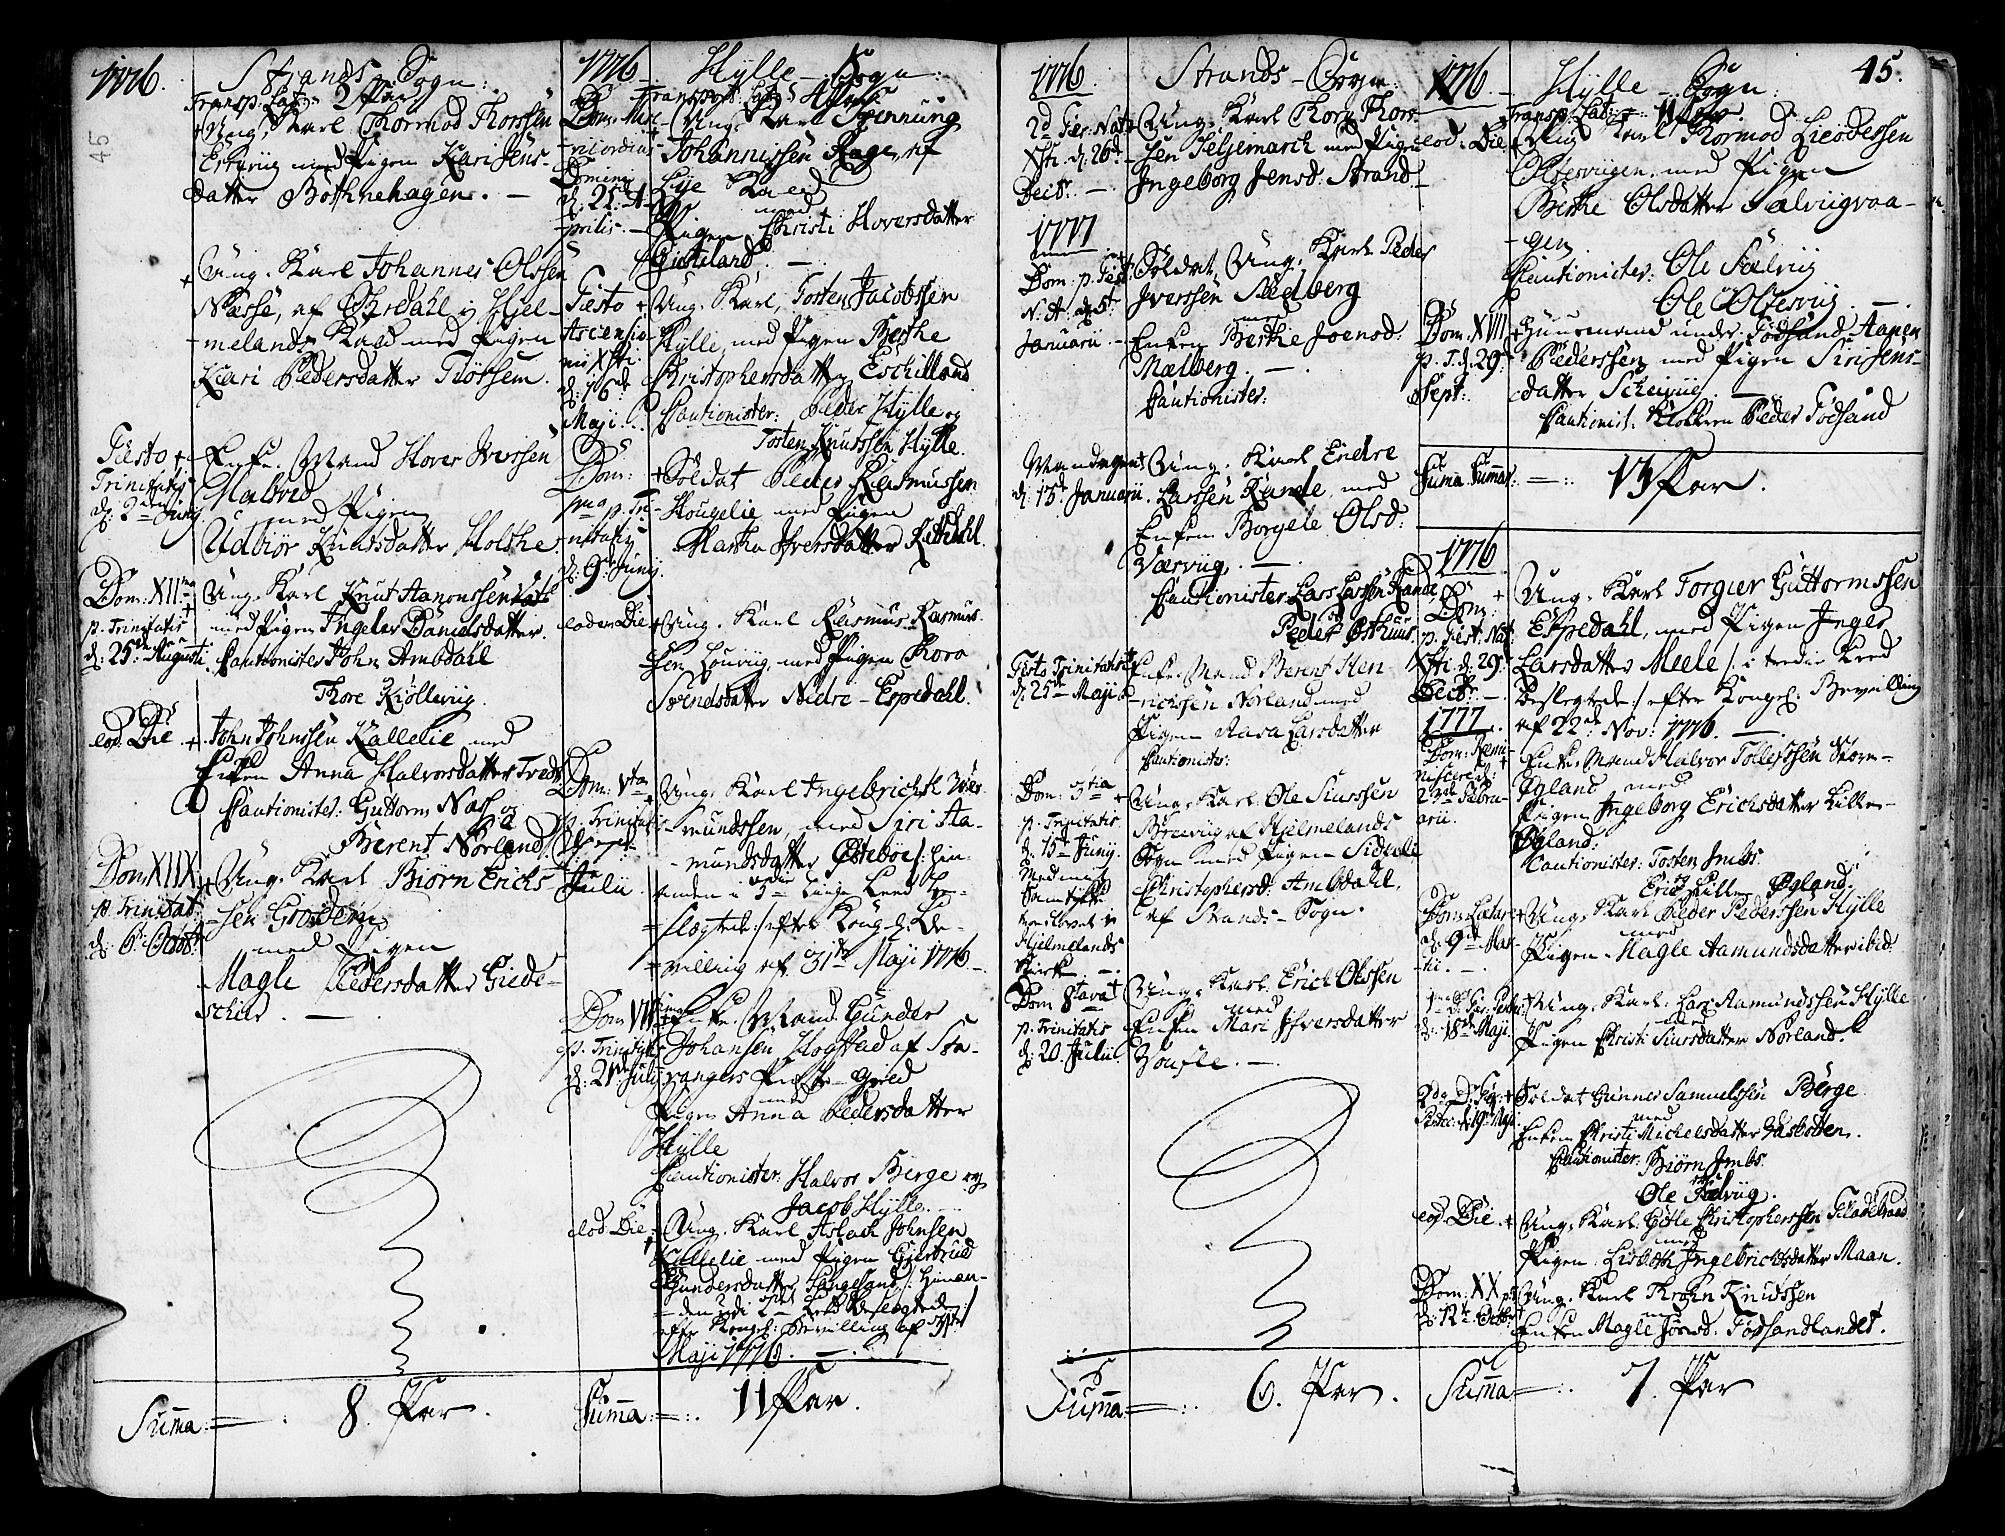 1776. Strands Sogn:
Transp: Lat: 2 Par
+ Ung. Karl Thormod Thorssen
Eskeviig med Pigen Kari Jens-
datter Bothnehagen. —
+ Ung. Karl Johannes Olssen
Næsse, af Ohrdahl i Hjel-
melands Kald med Pigen
Kari Pedersdatter Tiøssem.
Festo +
Trinitatis
d: 2den Junij
Enke. Mand Hover Iverssen
Malved
med Pigen
Udbiør Knutsdatter Holthe.
Dom: XIIma +
p. Trinitatis
d: 25de Augusti
Ung. Karl Knut Aanonssen
med Pigen Ingeler Danielsdatter.
Cautionister John Ambdahl
Thore Kiøllevig.
eod. Die. +
John Johnssen Kallelie med
Enken Anna Halvorsdatter
Cautionister: Guttorm Næss og
Berent Norland
Dom XIIX +
p. Trinitat:
d: 6te Octobr
Ung. Karl Biørn Erichs-
sen
med Pigen
Magle Pedersdatter Giede-
schier. —
Summa = : 8. Par.
1776 — Hylle — Sogn:
Transport: Lat: 4 Par
Dom: Mise-
ricordias
Domini
d: 21 A-
prilis. —
+ Ung. Karl
Johannissen Rage, af
Lye Kald
med
Pigen Christi Hoversdatter
Giskeland. —
Festo +
Ascensio-
nis Xsti
d: 16de
Maji.
Ung. Karl, Tosten Jacobssen
Hylle, med Pigen Berthe
Christophersdatter Eschilland
Cautionister: Peder Hylle og
Tosten Knudssen Hylle.
Dom: +
1ma p. Tri-
nitatis
d: 9de Junij.
Soldat Peder Rasmussen
Hougelie med Pigen
Martha Iversdatter Rettedahl.
eodem Die +
Ung. Karl Rasmus Rasmus-
sen med Pigen Thora
Svendsdatter Nedre - Espedahl.
Dom: Vta +
p. Trinitatis
Julii
Ung. Karl Ingebricht
mundssen, med Siri Aa-
mundsdatter Østebøe /: hin-
anden i 3die Linge Leed be-
slægtede :/ efter Kongel: Be-
villing af 31te Maji 1776. —
Dom VIIma
p. Trinitatis
d: 21de Julij
Enke. Mand. Gunder
Johansen Hogstad af Sta-
vangers Præste-gield
med
Pigen Anna Pedersdatter
Hylle
Cautionister: Halvor Berge og
Jacob Hylle.
eod. Die. +
Ung. Karl Aslach Johnsen
Kallelie med Pigen Giertrud
Gundersdatter Langeland /: hinan-
den udi Leed beslægtede :/
efter Kongel: Bevilling af 31te
Maji 1776. —
Summa = : 11 Par.
1776. Strands — Sogn.
2d Fer: Nat:
Xsti d: 26de
Decbr. —
Ung. Karl Thore Thors-
sen Feljemarck med Pigen
Ingeborg Jensd: Strand. —
1777
Dom: p. Fest +
N: A: d: 5te
Januarii. —
Soldat, Ung. Karl Peder
Iverssen Sedberg
med
Enken Berthe Joensd:
Mælberg. —
Cautionister:
Mandagen +
d: 13de Januarii.
Ung. Karl Endre
Larssen Rande, med
Enken Borgele Olsd:
Værviig. —
Cautionister: Lars Larssen Rande
og
Peder Østhuus.
Festo Trinitatis +
d: 25de Maji
Enke. Mand Berent Hen-
richssen Norland med
Pigen Aasa Larsdatter
Cautionister:
Dom: 3tia +
p. Trinitatis
d: 15de Junij.
Samtykke
i
Hjelmelands
Kirke —.
Ung. Karl Ole Siurssen
Breviig af Hjelmelands
Sogn med Pigen Sidsele
Christophersd: Ambdahl,
af Strands — Sogn.
Dom 8tava +
p. Trinitatis
d: 20. Julii
Ung. Karl. Erich Olssen
med
Enken Mari Ifversdatter
Voufle. —
Summa = : 6. Par.
1776. — Hylle — Sogn. 45.
Transp: Lat: 11 Par
eod: Die +
Ung Karl Thormod
Oltesviigen, med Pigen
Berthe Olsdatter Sælviigvaa-
gen.
Cautionister: Ole Sælviig
Ole Oltesviig. —.
Dom: XVII +
p. T. d: 29de
Sept:
Huusmand under Fossand Aanen
Pederssen med Pigen Siri Jens-
datter
Cautionist: Klokkeren Peder Fossand
Suma Sumar: = : 13 Par.
1776
Dom: +
p. Fest: Nat:
Xsti d: 29de
Decbr. —
Ung. Karl Torgier Guttormssen
Espedahl, med Pigen Inger
Larsdatter Meele /: i tredie Leed
beslegtede :/ efter Kongel: Bevelling
af 22de Nov: 1776. —
1777.
Dom: Remi-
niscere d: +
23de Febru-
arii.
Enke. Mand Halvor Tollefssen Store-
Øgland med
Pigen Ingeborg Erichsdatter Lille-
Øgland:
Cautionister: Tosten Imbs.
og
Erich Lille Øgland.
Dom: Lætare +
d: 9de Mar-
tii. —.
Ung. Karl Peder Pederssen Hylle
med
Pigen Magle Aamundsdatter ibid:
d: 18de Maji
Ung. Karl: Lars Aamundssen Hylle
med
Pigen Christi Siursdatter Norland.
2da D. +
Pentec: d: 19de Maji
Soldat Gunner Samuelssen Berge
med
Enken Christi Michelsdatter Vasbotten.
Cautionister: Biørn Imbs.
og
Ole Sælviig.
eod. Die. +
Ung. Karl. Giøte Christopherssen
med
Pigen Lisbeth Ingebrichtsdatter Maan.
Dom: XX p: T
d: 12te Octobr
Ung. Karl Thron Knudssen
med
Enken Magle Joensd: Fossandlandet.
Summa = : 7. Par